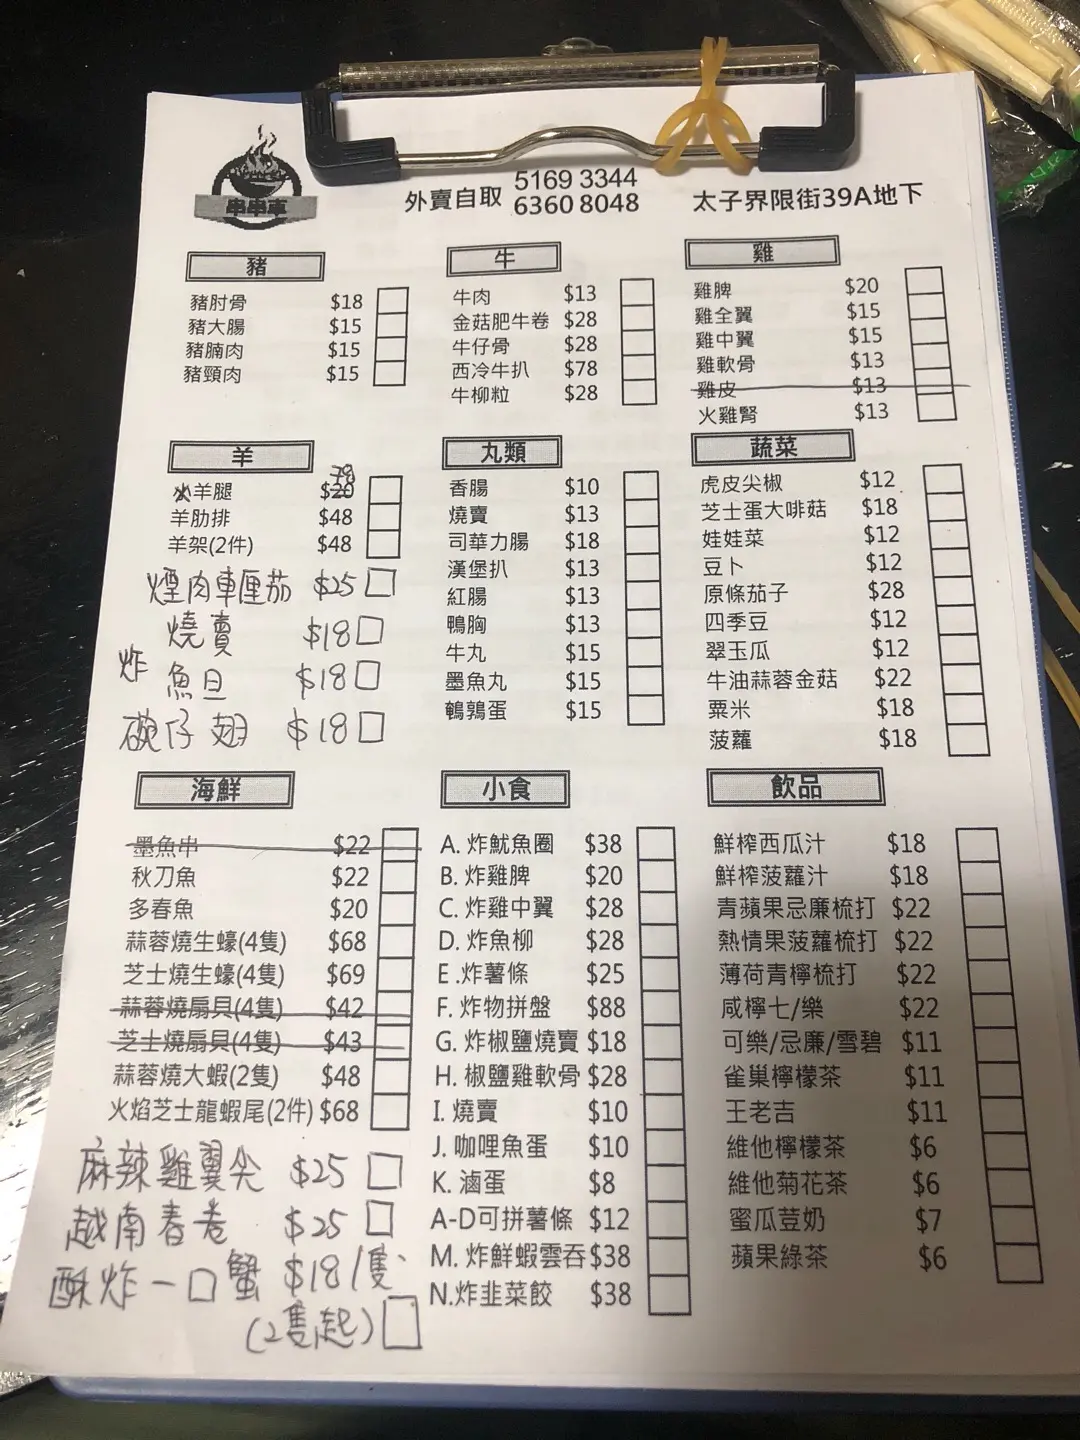 串串車
外賣自取 5169 3344
6360 8048
太子界限街39A地下
豬
豬肘骨 $18
豬大腸 $15
豬腩肉 $15
豬頸肉 $15
牛
牛肉 $13
金菇肥牛卷 $28
牛仔骨 $28
西冷牛扒 $78
牛柳粒 $28
雞
雞脾 $20
雞全翼 $15
雞中翼 $15
雞軟骨 $13
雞皮 $13
火雞腎 $13
羊
羊腿 $20 78
羊肋排 $48
羊架(2件) $48
煙肉車厘茄 $25
燒賣 $18
炸魚旦 $18
碗仔翅 $18
丸類
香腸 $10
燒賣 $13
司華力腸 $18
漢堡扒 $13
紅腸 $13
鴨胸 $13
牛丸 $15
墨魚丸 $15
鵪鶉蛋 $15
蔬菜
虎皮尖椒 $12
芝士蛋大啡菇 $18
娃娃菜 $12
豆卜 $12
原條茄子 $28
四季豆 $12
翠玉瓜 $12
牛油蒜蓉金菇 $22
粟米 $18
菠蘿 $18
海鮮
墨魚串 $22
秋刀魚 $22
多春魚 $20
蒜蓉燒生蠔(4隻) $68
芝士燒生蠔(4隻) $69
蒜蓉燒扇貝(4隻) $42
芝士燒扇貝(4隻) $43
蒜蓉燒大蝦(2隻) $48
火焰芝士龍蝦尾(2件) $68
麻辣雞翼尖 $25
越南春卷 $25
酥炸一口蟹 $18/隻
(2隻起)
小食
A. 炸魷魚圈 $38
B. 炸雞脾 $20
C. 炸雞中翼 $28
D. 炸魚柳 $28
E .炸薯條 $25
F. 炸物拼盤 $88
G. 炸椒鹽燒賣 $18
H. 椒鹽雞軟骨 $28
I. 燒賣 $10
J. 咖哩魚蛋 $10
K. 滷蛋 $8
A-D可拼薯條 $12
M. 炸鮮蝦雲吞 $38
N.炸韭菜餃 $38
飲品
鮮榨西瓜汁 $18
鮮榨菠蘿汁 $18
青蘋果忌廉梳打 $22
熱情果菠蘿梳打 $22
薄荷青檸梳打 $22
咸檸七/樂 $22
可樂/忌廉/雪碧 $11
雀巢檸檬茶 $11
王老吉 $11
維他檸檬茶 $6
維他菊花茶 $6
蜜瓜荳奶 $7
蘋果綠茶 $6